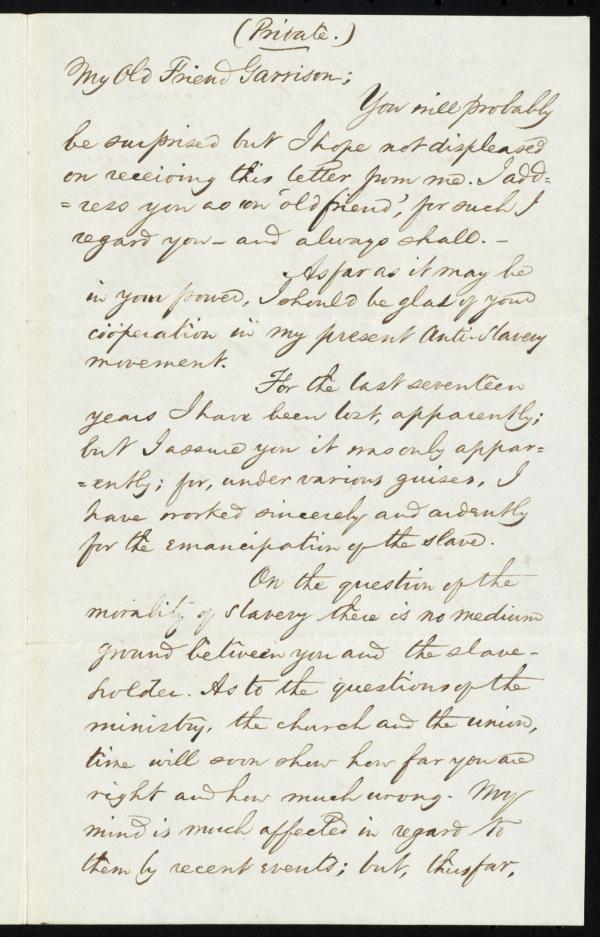 (Private.)
My Old Friend Garrison;
You will probably
be surprised but I hope not displeased
on receiving this letter from me. I add=
=ress you as an 'old friend', for such I
regard you – and always shall. –
As far as it may be
in your power, I should be glad of your
coöperation in my present Anti-Slavery
movement.
For the last seventeen
years I have been lost, apparently;
but I assure you it was only appar=
=ently; for, under various guises, I
have worked sincerely and ardently
for the emancipation of the slave.
On the question of the
morality of slavery there is no medium
ground between you and the slave-
holder. As to the questions of the
ministry, the church and the union,
time will soon show how far you are
right and how much wrong. My
mind is much affected in regard to
them by recent events; but, thus far,